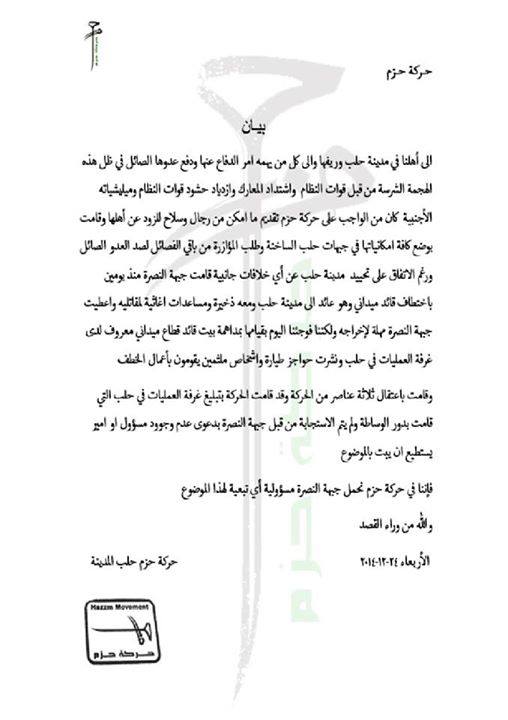 حركة حزم
بيـان
الى أهلنا في مدينة حلب وريفها والى كل من يهمه امر الدفاع عنها ودفع عدوها الصائل في ظل هذه
الهجمة الشرسة من قبل قوات النظام واشتداد المعارك وازدياد حشود قوات النظام وميليشياته
الأجنبية كان من الواجب على حركة حزم تقديم ما امكن من رجال وسلاح للزود عن أهلها وقامت
بوضع كافة امكانياتها في جبهات حلب الساخنة وطلب المؤازرة من باقي الفصائل لصد العدو الصائل
ورغم الاتفاق على تحييد مدينة حلب عن أي خلافات جانبية قامت جبهة النصرة منذ يومين
باختطاف قائد ميداني وهو عائد الى مدينة حلب ومعه ذخيرة ومساعدات اغاثية لمقاتليه واعطيت
جبهة النصرة مهلة لإخراجه ولكننا فوجئنا اليوم بقيامها بمداهمة بيت قائد قطاع ميداني معروف لدى
غرفة العمليات في حلب ونشرت حواجز طيارة واشخاص ملثمين يقومون بأعمال الخطف
وقامت باعتقال ثلاثة عناصر من الحركة وقد قامت الحركة بتبليغ غرفة العمليات في حلب التي
قامت بدور الوساطة ولم يتم الاستجابة من قبل جبهة النصرة بدعوى عدم وجوود مسؤول او امير
يستطيع ان يبت بالموضوع
فإننا في حركة حزم نحمل جبهة النصرة مسؤولية أي تبعية لهذا الموضوع
والله من وراء القصد
الأربعاء ٢٤-١٢-٢٠١٤
حركة حزم حلب المدينة
Hazzm Movement
حركة حزم